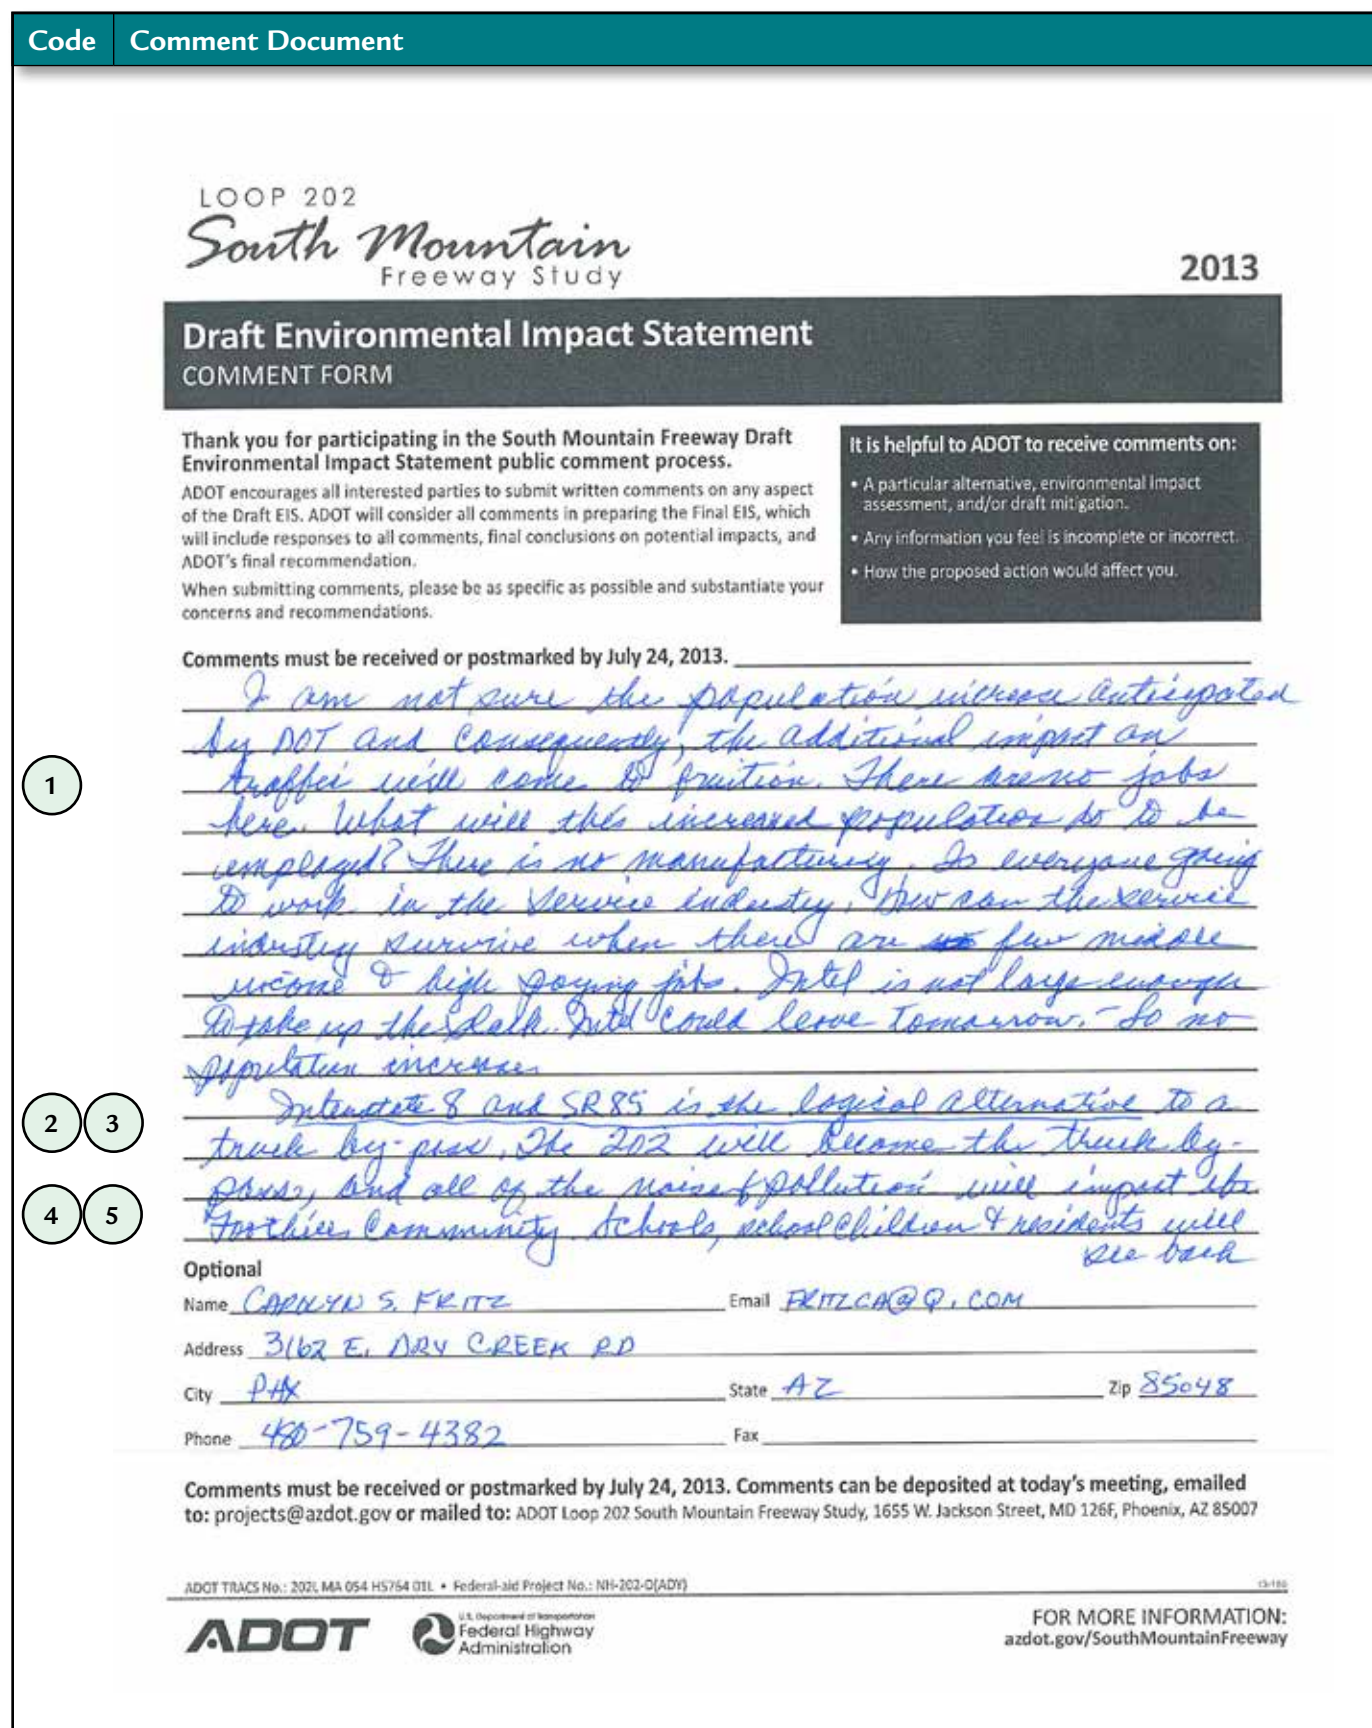 Code Comment Document
LOOP 202
South Mountain
Freeway Study
2013
Draft Environmental Impact Statement
COMMENT FORM
Thank you for participating in the South Mountain Freeway Draft
Environmental Impact Statement public comment process.
ADOT encourages all interested parties to submit written comments on any aspect
of the Draft EIS. ADOT will consider all comments in preparing the Final EIS, which
will include responses to all comments, final conclusions on potential impacts, and
ADOT's final recommendation.
When submitting comments, please be as specific as possible and substantiate your
concerns and recommendations.
It is helpful to ADOT to receive comments on:
• A particular alternative, environmental impact
assessment, and/or draft mitigation.
• Any information you feel is incomplete or incorrect.
• How the proposed action would affect you.
Comments must be received or postmarked by July 24, 2013.
I am not sure the population increase anticipated
by DOT and consequently, the additional impact on
1
traffic will come to fruition. There are no jobs
here. What will this increased population do to be
employed? There is no manufacturing. Is everyone going
to work in the service industry, How can the service
industry survive when there are few middle
income & high paying jobs. Intel is not large enough
to take up the slack. Intel could leave tomorrow. - So no
population increase.
2 3
Interstate 8 and SR85 is the logical alternative to a
truck by-pass. The 202 will become the truck by-
pass, and all of the noise & pollution will impact the
4 5
Foothills Community. Schools, school children & residents will
see back
Optional
Name CAROLYN S. FRITZ Email FRITZCA@Q.COM
Address 3162 E. DRY CREEK RD
City PHX State AZ Zip 85048
Phone 480-759-4382 Fax
Comments must be received or postmarked by July 24, 2013. Comments can be deposited at today's meeting, emailed
to: projects@azdot.gov or mailed to: ADOT Loop 202 South Mountain Freeway Study, 1655 W. Jackson Street, MD 126F, Phoenix, AZ 85007
ADOT TRACS No.: 202L MA 054 H5764 01L • Federal-aid Project No.: NH-202-D(ADY)
ADOT
U.S. Department of Transportation
Federal Highway
Administration
FOR MORE INFORMATION:
azdot.gov/SouthMountainFreeway